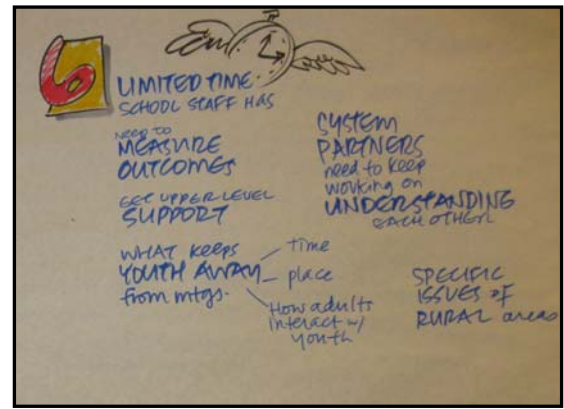 6
LIMITED TIME
SCHOOL STAFF HAS
NEED TO
MEASURE
OUTCOMES
GET UPPER LEVEL
SUPPORT
WHAT KEEPS
YOUTH AWAY
from mtgs.
time
place
How adults
interact w/
youth
SYSTEM
PARTNERS
need to keep
working on
UNDERSTANDING
EACH OTHER
SPECIFIC
ISSUES of
RURAL areas